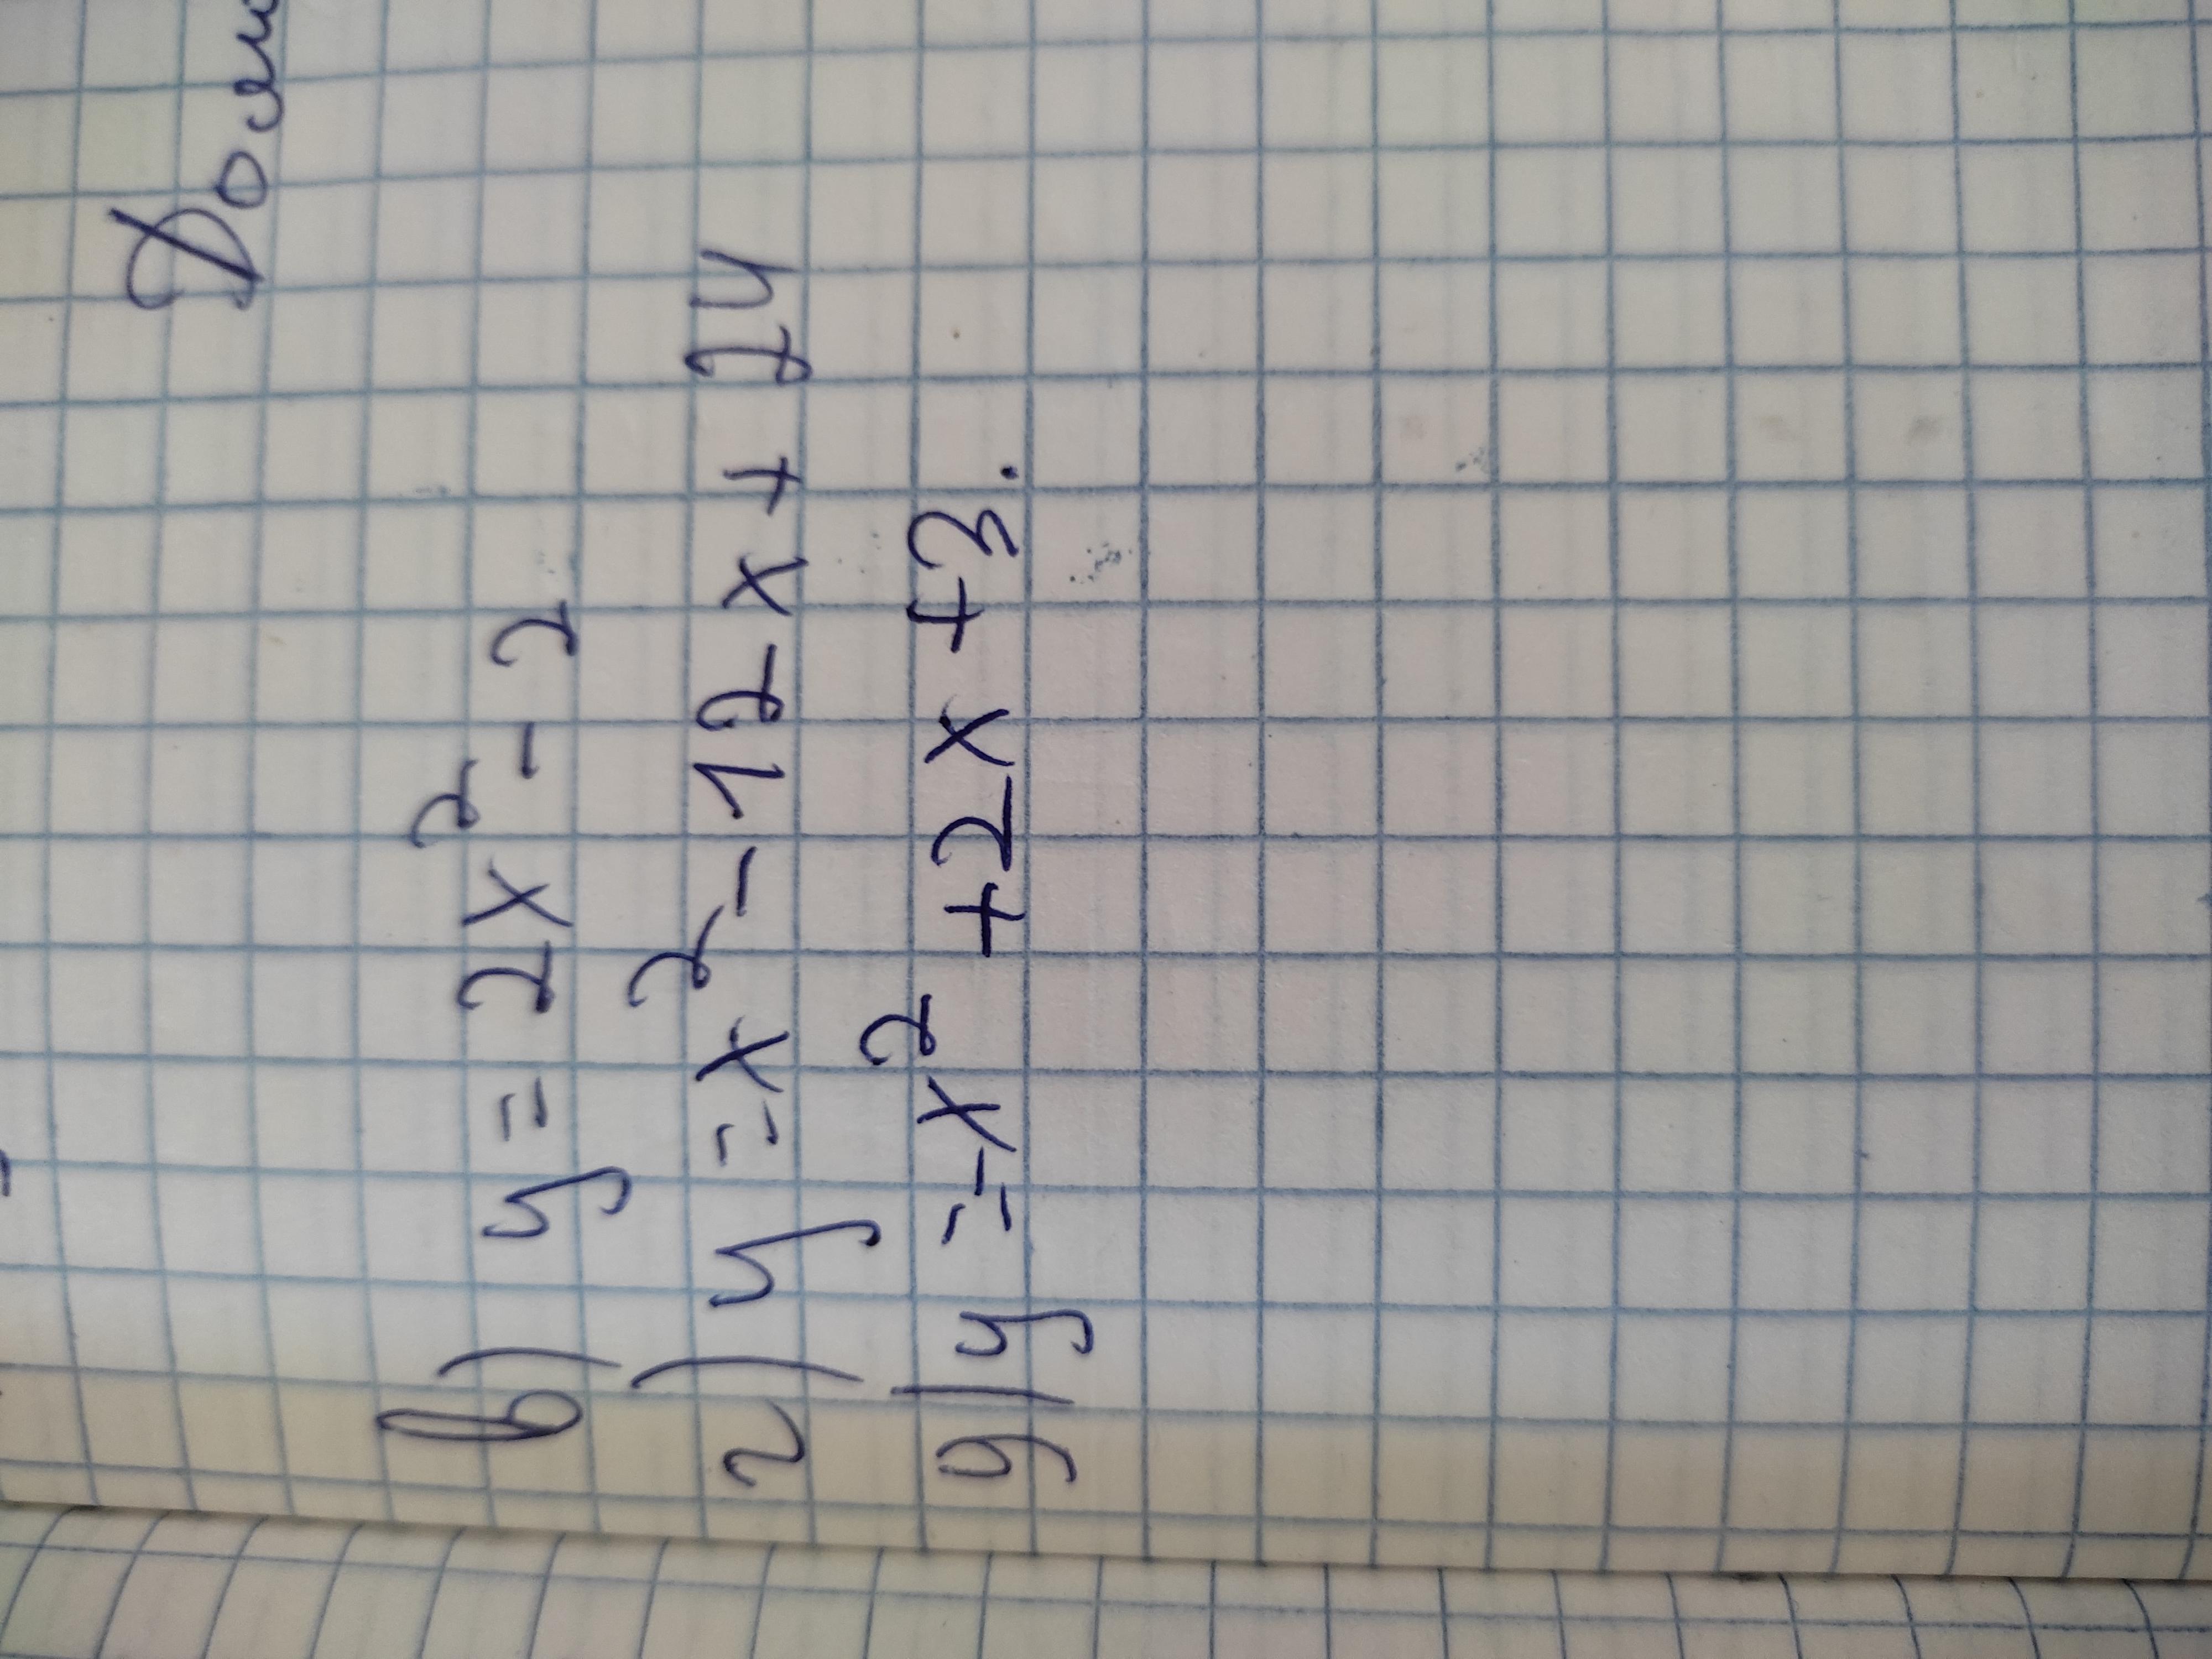 в) y = 2x² - 2
г) y = x² - 12x + 24
д) y = -x² + 2x + 3.